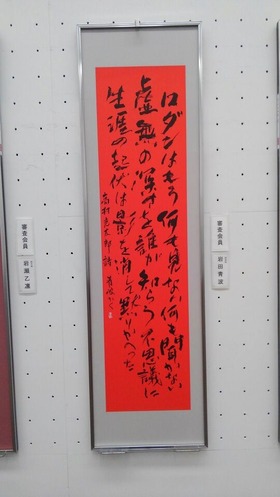 ロダンはもう何も見ない何も聞かない
虚無の深さを誰が知らう不思議に
生涯の起伏は影を消して黙りかへつた
高村光太郎詩
審査会員
岩田青波
審査会員
岩瀬乙